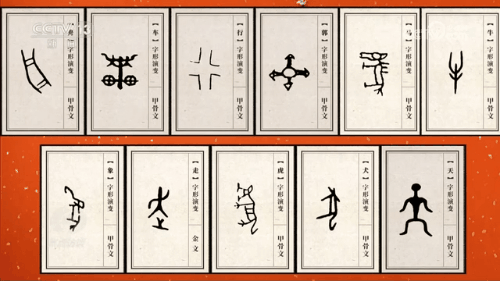 CCTV
字形演变 甲骨文
【车】字形演变 甲骨文
【行】字形演变 甲骨文
【郭】字形演变 甲骨文
【马】字形演变 甲骨文
【牛】字形演变 甲骨文
【象】字形演变 甲骨文
【走】字形演变 金文
【虎】字形演变 甲骨文
【犬】字形演变 甲骨文
【天】字形演变 甲骨文